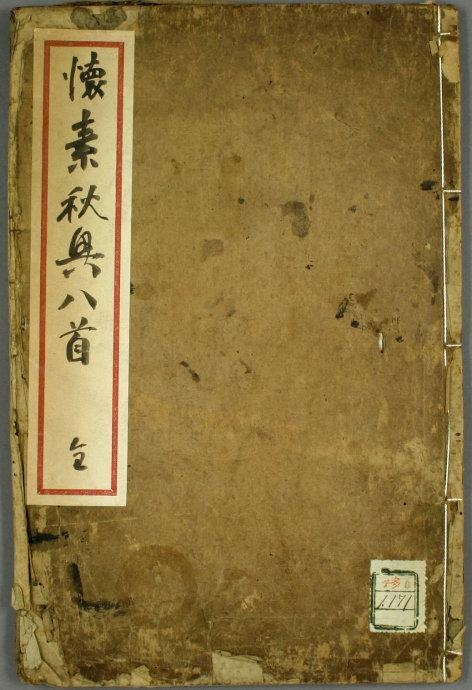 懐素秋興八首 全
1171